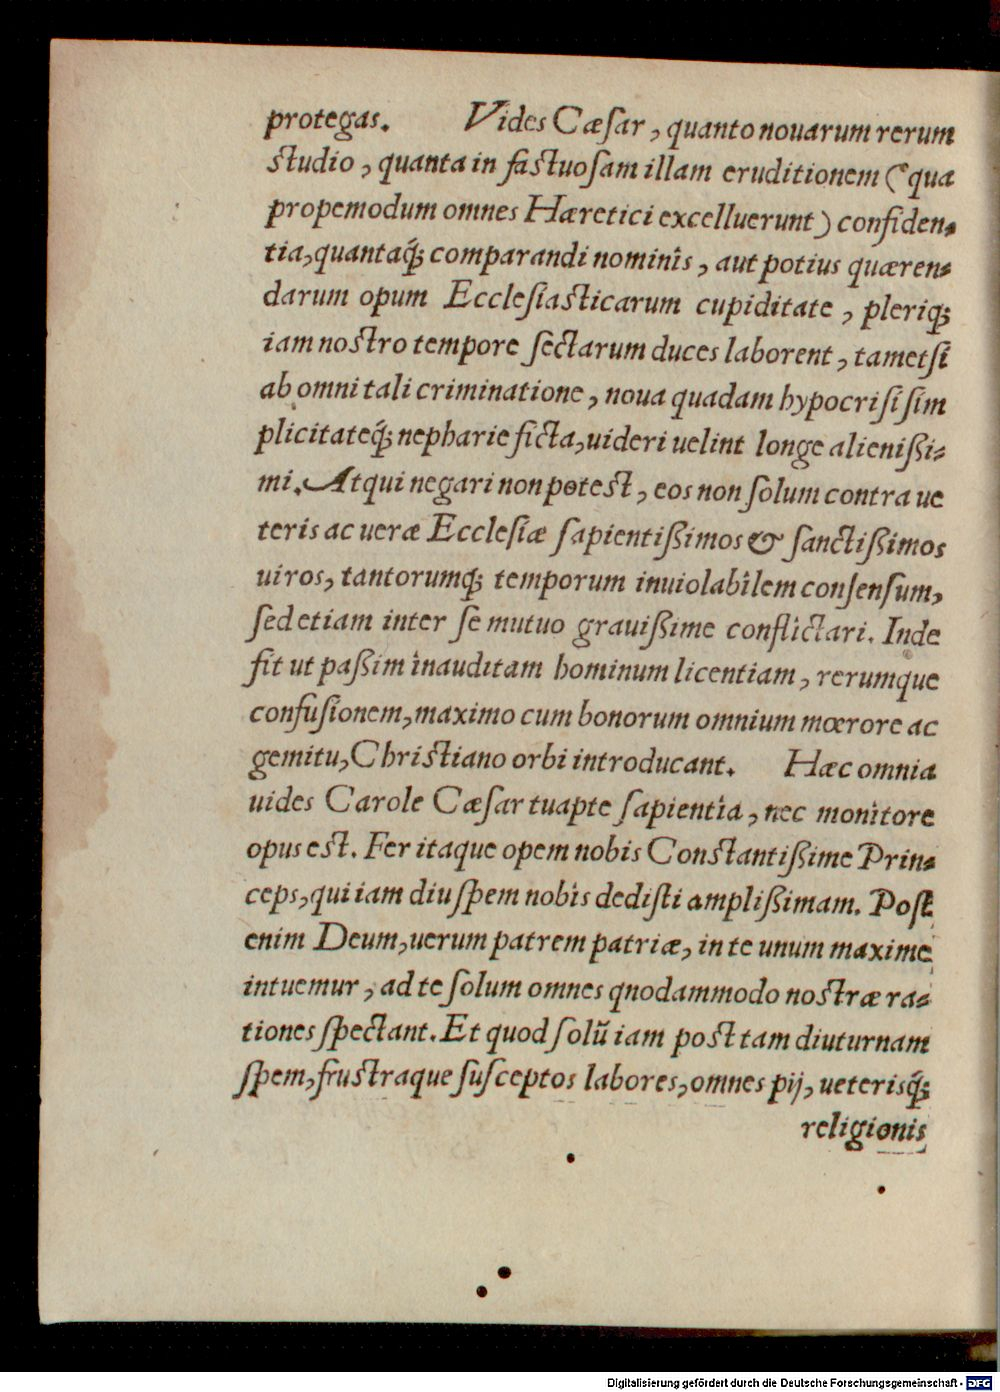 protegas. Vides Cæſar, quanto nouarum rerum
ſtudio, quanta in faſtuoſam illam eruditionem (qua
propemodum omnes Hæretici excelluerunt) confiden-
tia, quantaq́; comparandi nominis, aut potius quæren-
darum opum Eccleſiaſticarum cupiditate, pleriq;
iam noſtro tempore ſectarum duces laborent, tametſi
ab omni tali criminatione, noua quadam hypocriſi ſim
plicitateq́; nepharie ficta, uideri uelint longe alienißi-
mi. Atqui negari non poteſt, eos non ſolum contra ue
teris ac ueræ Eccleſiæ ſapientißimos & ſanctißimos
uiros, tantorumq; temporum inuiolabilem conſenſum,
ſed etiam inter ſe mutuo grauißime conflictari. Inde
fit ut paßim inauditam hominum licentiam, rerumque
confuſionem, maximo cum bonorum omnium mœrore ac
gemitu, Chriſtiano orbi introducant. Hæc omnia
uides Carole Cæſar tuapte ſapientia, nec monitore
opus eſt. Fer itaque opem nobis Conſtantißime Prin-
ceps, qui iam diu ſpem nobis dediſti amplißimam. Poſt
enim Deum, uerum patrem patriæ, in te unum maxime
intuemur, ad te ſolum omnes qnodammodo noſtræ ra-
tiones ſpectant. Et quod ſolũ iam poſt tam diuturnam
ſpem, fruſtraque ſuſceptos labores, omnes pij, ueterisq́;
religionis
Digitalisierung gefördert durch die Deutsche Forschungsgemeinschaft - DFG